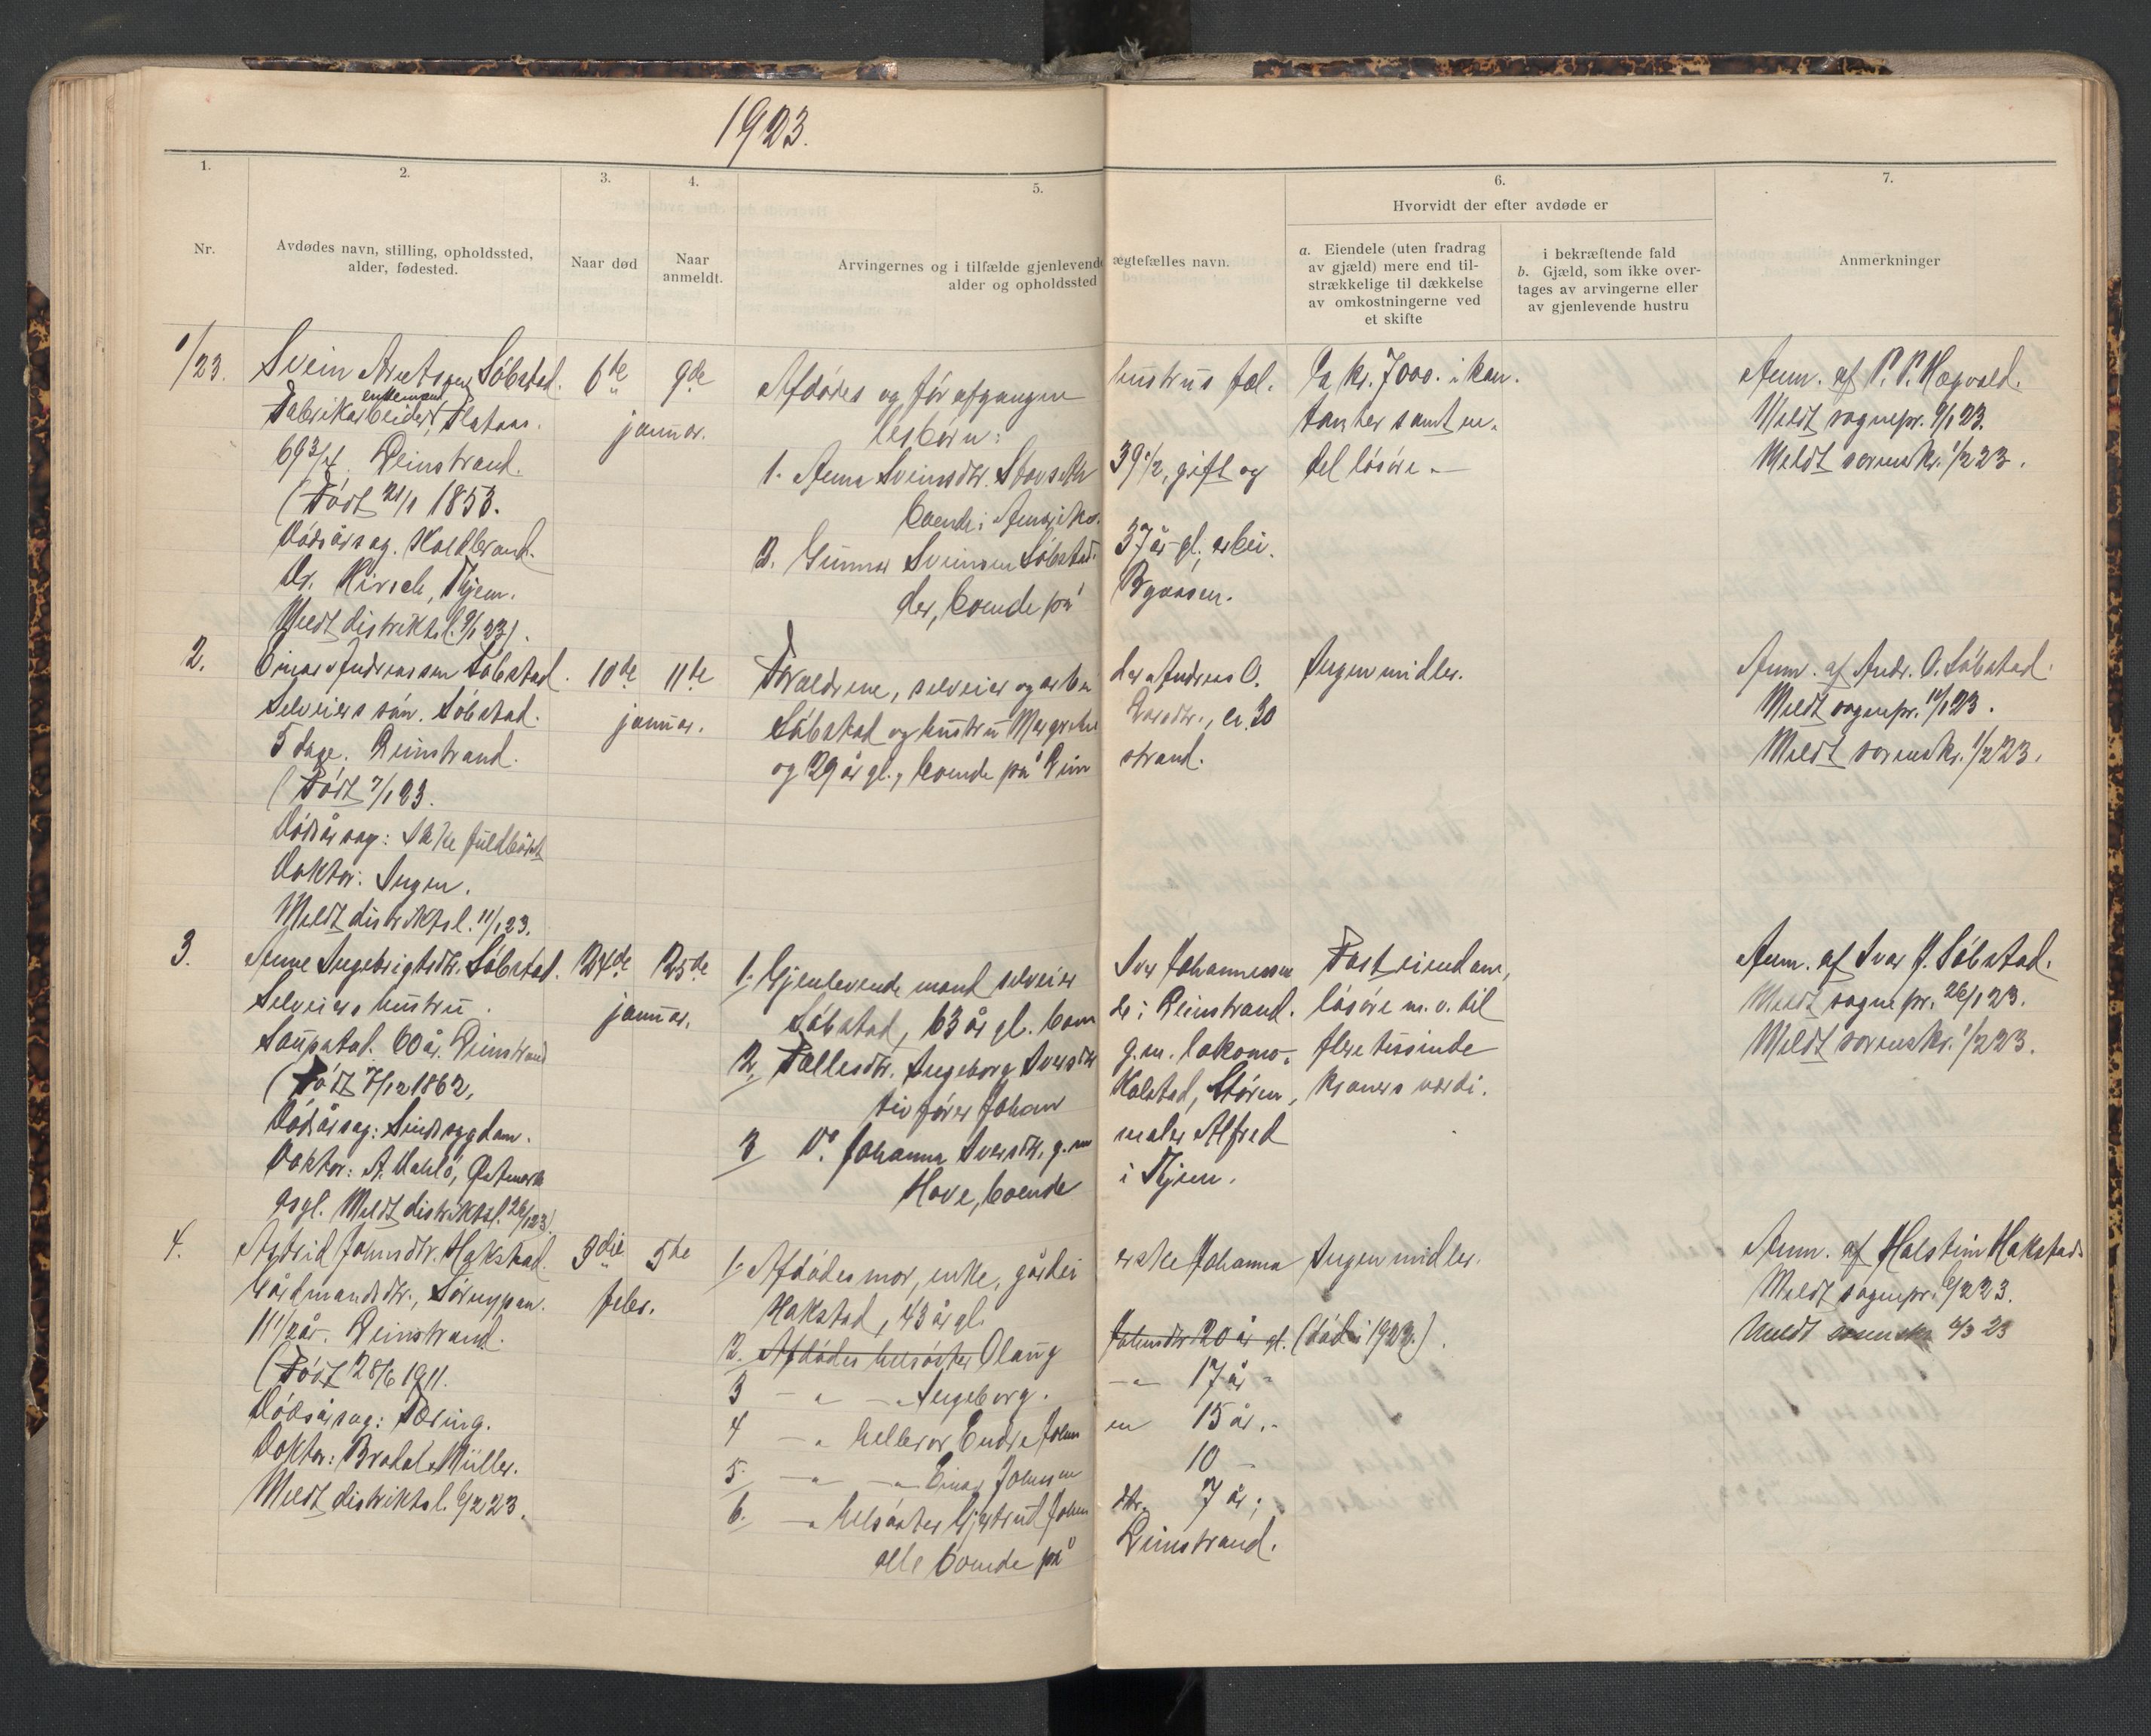 1923.
1.
2.
3.
4.
5.
6.
7.
Nr.
Avdødes navn, stilling, opholdssted,
alder, fødested.
Naar død
Naar
anmeldt.
Arvingernes og i tilfælde gjenlevende ægtefælles navn.
alder og opholdssted
Hvorvidt der efter avdøde er
a. Eiendele (uten fradrag
av gjæld) mere end til-
strækkelige til dækkelse
av omkostningerne ved
et skifte
i bekræftende fald
b. Gjæld, som ikke over-
tages av arvingerne eller
av gjenlevende hustru
Anmerkninger
1/23.
Svein Søbstad.
enkemand
Fabrikarbeider, Flataas.
69 3/4 Leinstrand.
(Født 21/1 1853.
Dødsårsag. Koldbrand.
Dr. Hirsch, Thjem.
Meldt distriktsl. 9/1 23).
6te
9de
januar.
Afdødes og før afgangne hustrus fæl.
lesbørn:
1. Anna Sveinsdtr. 39 1/2, gift og
boende i Amerika.
2. Gunnar Sveinsen Søbstad 37 år gl. arbei.
der, boende på Byaasen.
Ca kr. 7000. i kon.
tanter samt en.
del løsøre.
Anm. af P. P. Hogvold.
Meldt sognepr. 9/1 23.
Meldt sorenskr. 1/2 23.
2.
Einar Andreassen Søbstad.
Selveiers søn. Søbstad.
5 dage. Leinstrand.
(Født 7/1 23.
Dødsårsag: Ikke fuldbåret
Doktor: Ingen.
Meldt distriktsl. 11/1 23.
10de
11te
januar.
Forældrene, selveier og arbei der Andreas O.
Søbstad og hustru Margrethe Larsdtr., ca. 30
og 29 år gl., boende på Lein strand.
Ingen midler.
Anm. af Andr. O. Søbstad.
Meldt sognepr. 11/1 23.
Meldt sorenskr. 1/2 23.
3.
Anne Ingebrigtsdtr. Søbstad.
Selveiers hustru.
Saupstad. 60 år. Leinstrand
(Født 7/12 1862,
Dødsårsag: Sindssygdom.
Doktor: A. Dahlö, Østmark
asyl. Meldt distriktsl. 26/1 23).
24de
25de
januar.
1. Gjenlevende mand selveier Iver Johannessen
Søbstad, 63 år gl. boen de i Leinstrand.
2. Fællesdtr. Ingeborg Iversdtr g.m. lokomo-
tivfører Johan Halstad, Støren,
3 Do. Johanna Iversdtr. g.m maler Alfred
Hove, boende i Thjem.
Fast eiendom,
løsøre m. v. til
flere tusinde
kroners værdi.
Anm. af Ivar J. Søbstad.
Meldt sognepr. 26/1 23.
Meldt sorenskr. 1/2 23.
4.
Astrid Johnsdtr. Hakstad.
Gårdmandsdtr., Sørnypan.
11 1/2 år. Leinstrand.
(Født 28/6 1911.
Dødsårsag: Tæring.
Doktor: Müller.
Meldt distriktsl. 6/2 23.
3die
5te
febr.
1. Afdødes mor, enke, gårdei erske Johanna
Hakstad, 43 år gl.
2. Afdødes helsøster Olaug Johnsdtr 20 år gl. (død i 1922.).
3 — " — Ingeborg. — " — 17 år
4 — " helbror Endre Johns en 15 år.
5. — " — Einar Johnsen 10 —
6. — " helsøster Gjertrud Johns dtr. 7 år;
alle boende på Leinstrand.
Ingen midler.
Anm. af Halstein Hakstad.
Meldt sognepr. 6/2 23.
Meldt sorenskr 4/3 23